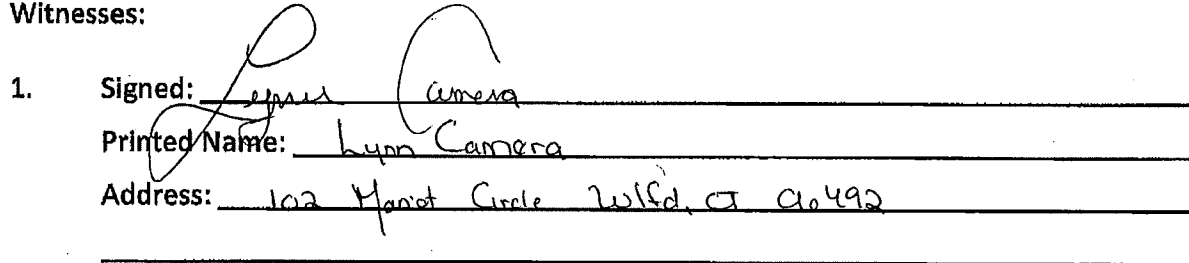 Witnesses:
1. Signed: Lynn Camera
Printed Name: Lynn Camera
Address: 102 Circle Wlfd, CT